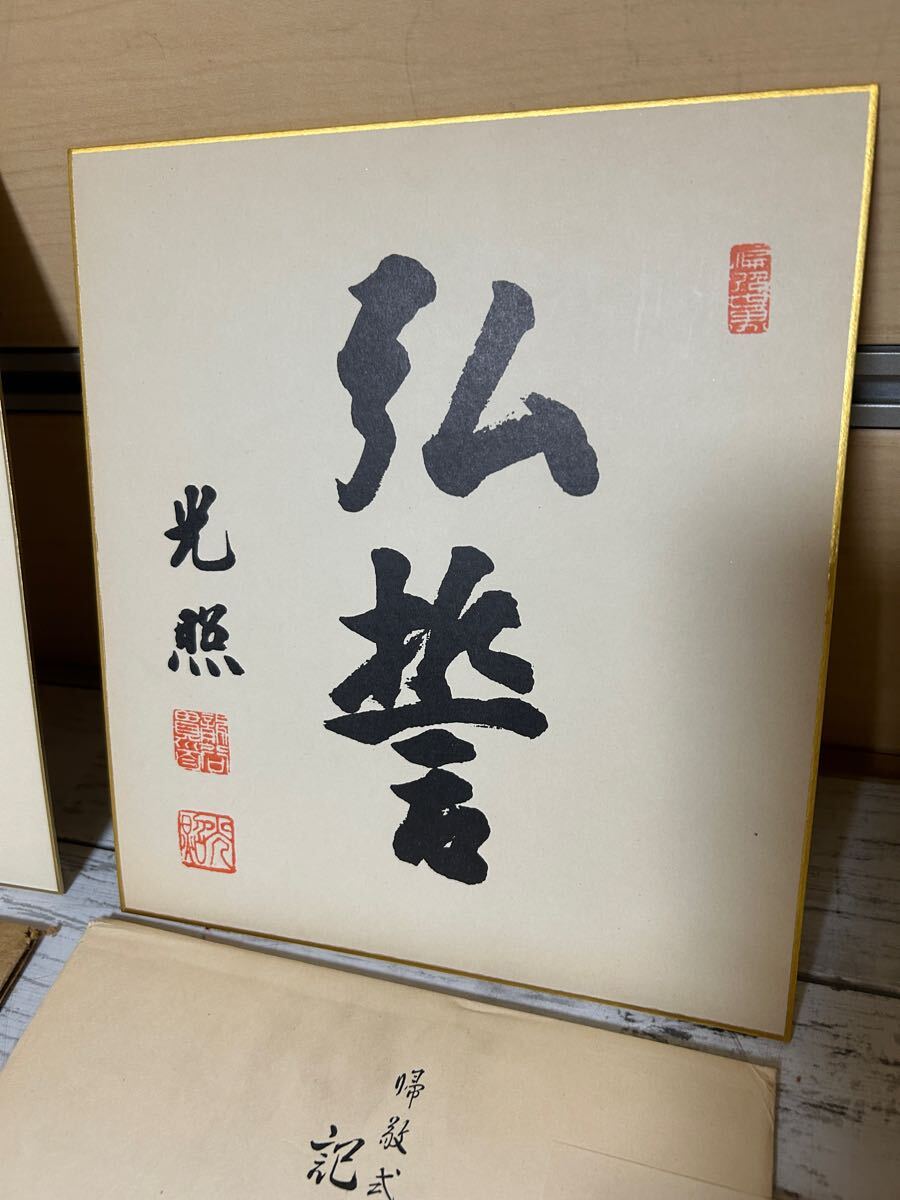 弘誓
光照
帰敬式
記